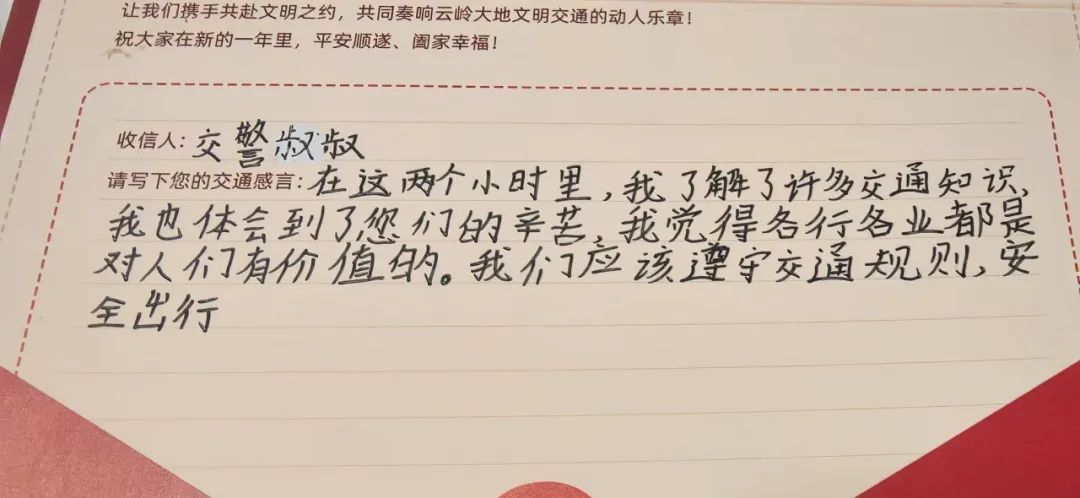 让我们携手共赴文明之约，共同奏响云岭大地文明交通的动人乐章！
祝大家在新的一年里，平安顺遂、阖家幸福！
收信人：交警叔叔
请写下您的交通感言：在这两个小时里，我了解了许多交通知识，
我也体会到了您们的辛苦，我觉得各行各业都是
对人们有价值的。我们应该遵守交通规则，安
全出行